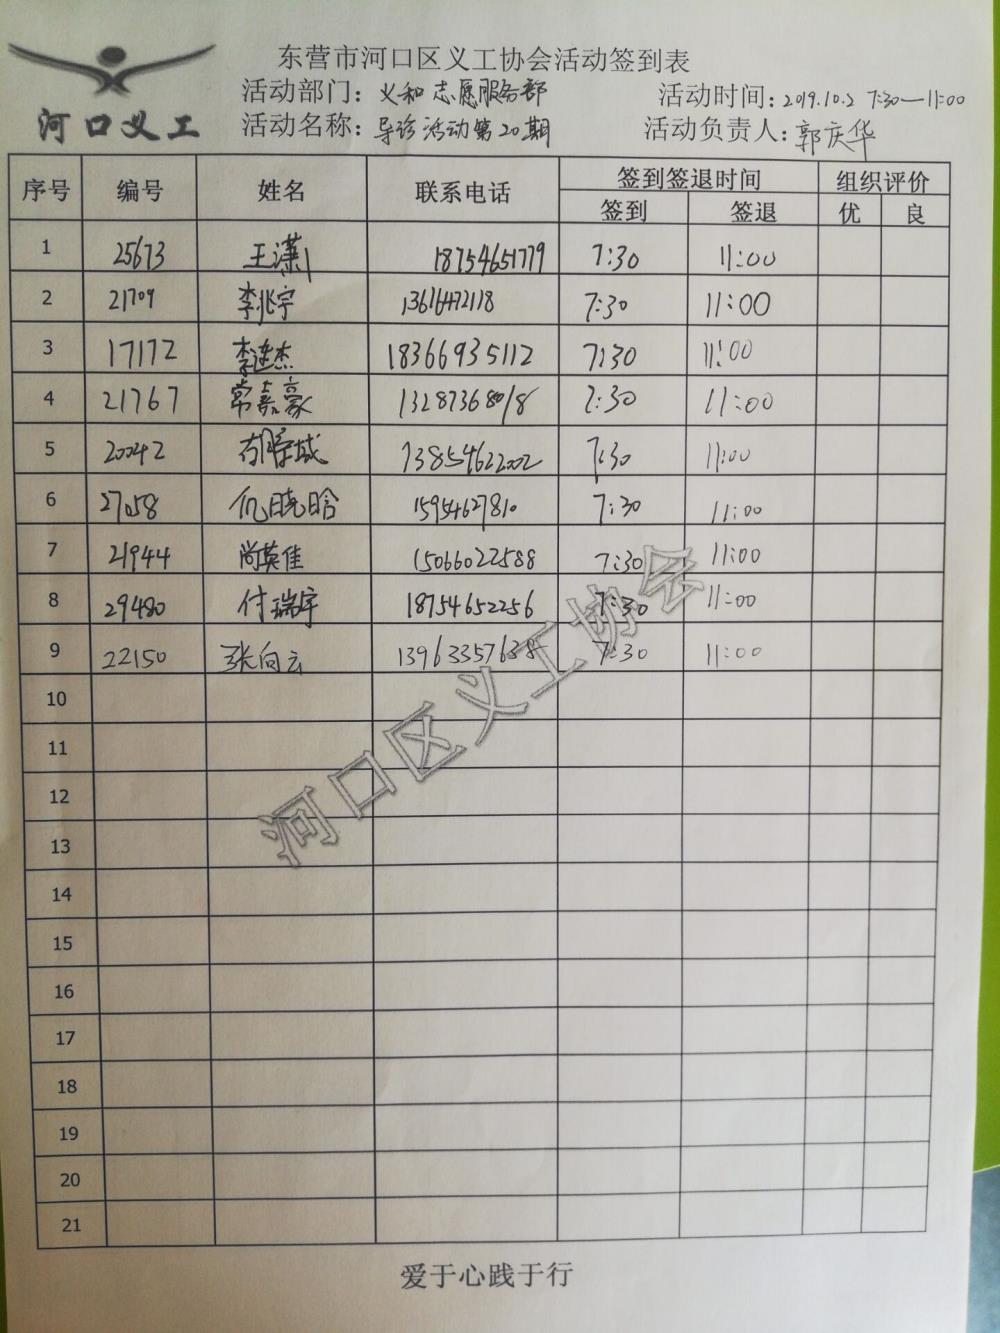 东营市河口区义工协会活动签到表
活动部门：义和志愿服务部 活动时间：2019.10.2 7:30—11:00
河口义工 活动名称：导诊活动第20期 活动负责人：郭庆华
序号 编号 姓名 联系电话 签到签退时间 组织评价
签到 签退 优 良
1 25673 王潇 18754651779 7:30 11:00
2 21709 李兆宇 13616472118 7:30 11:00
3 17172 李连杰 18366935112 7:30 11:00
4 21767 常嘉豪 13287368018 7:30 11:00
5 20042 13854622002 7:30 11:00
6 27058 仉晓晗 15954627810 7:30 11:00
7 21944 尚英佳 15066022588 7:30 11:00
8 29480 付瑞宇 18754652256 7:30 11:00
9 22150 张向云 13963357638 7:30 11:00
10
11
12
13
14
15
16
17
18
19
20
21
河口区义工协会
爱于心践于行